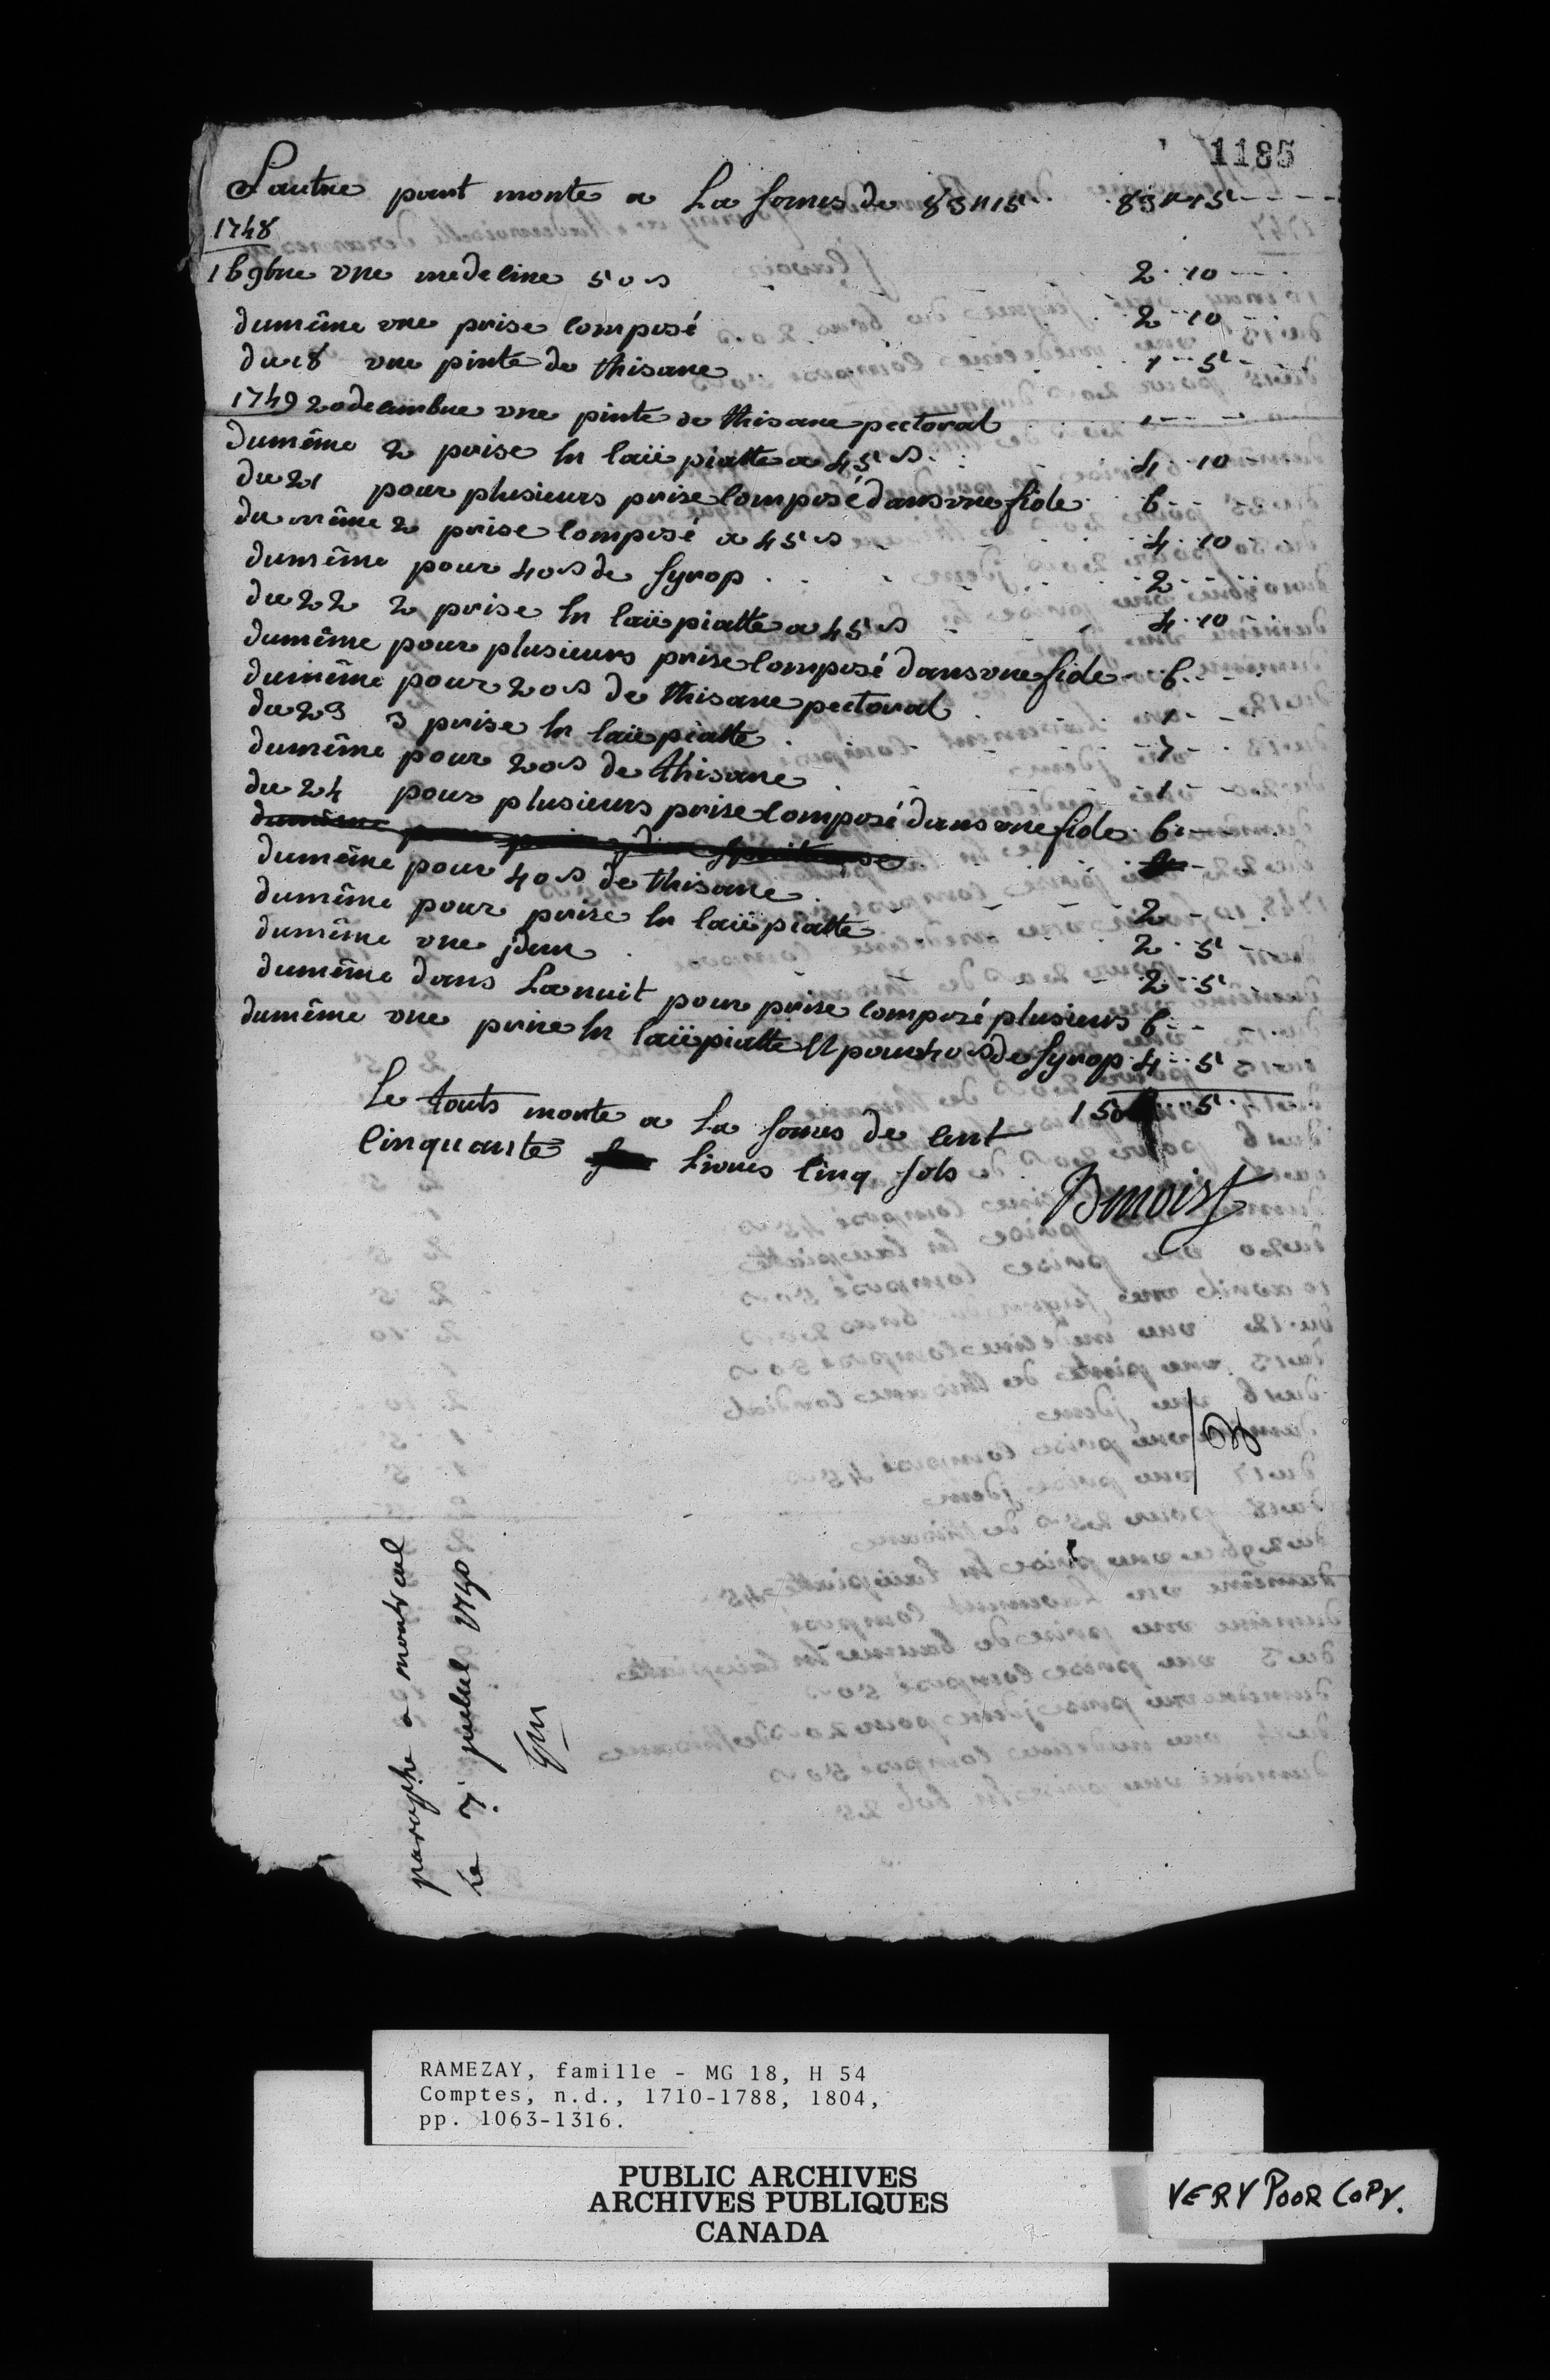 1185
L'autre part monte a La somes de 83#15 83#15
1748
16 9bre une medecine 50s 2 10
dumême une prise composé 2 10
du 18 une pinte de thisane 1 5
1749 20 decembre une pinte de thisane pectoral 1
dumême 2 prise en laiépiatte a 45s 4 10
du 21 pour plusieurs prise composé dans une fiole 6
du même 2 prise composé a 45s 4 10
dumême pour 40s de syrop 2
du 22 2 prise en laiépiatte a 45s 4 10
dumême pour plusieurs prise composé dans une fiole 6
dumême pour 20s de thisane pectoral 1
du 23 3 prise en laiépiatte 7
dumême pour 20s de thisane 1
du 24 pour plusieurs prise composé dans une fiole 6
dumême
dumême pour 40s de thisane 2
dumême pour prise en laiépiatte 2 5
dumême une jdem 2 5
dumême dans La nuit pour prise composé plusieurs 6
dumême une prise en laiépiatte et pour 40s de syrop 4 5
150 5
Le touts monte a La somes de cent
cinquante Livres cinq sols
Benoist
paraphe a montreal
Le 7e juillet 1750
RAMEZAY, famille - MG 18, H 54
Comptes, n.d., 1710-1788, 1804,
pp. 1063-1316.
PUBLIC ARCHIVES
ARCHIVES PUBLIQUES
CANADA
VERY POOR COPY.